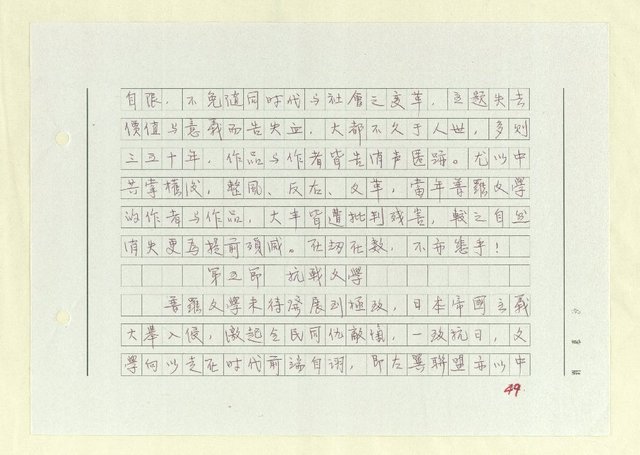 自限，不免值同时代与社會之变革，主题失去
價值与意義而告失血，大都不久于人世，多则
三五十年，作品与作者皆告消声匿跡。尤以中
共掌權後，整風、反右、文革，當年普羅文學
的作者与作品，大半皆遭批判残害，較之自然
消失更為提前殞滅。在劫在数，不亦悲乎！
第五節 抗战文學
普羅文學未待發展到極致，日本帝國主義
大舉入侵，激起全民同仇敵愾，一致抗日，文
學向以走在时代前端自诩，即左翼聯盟亦以中
49